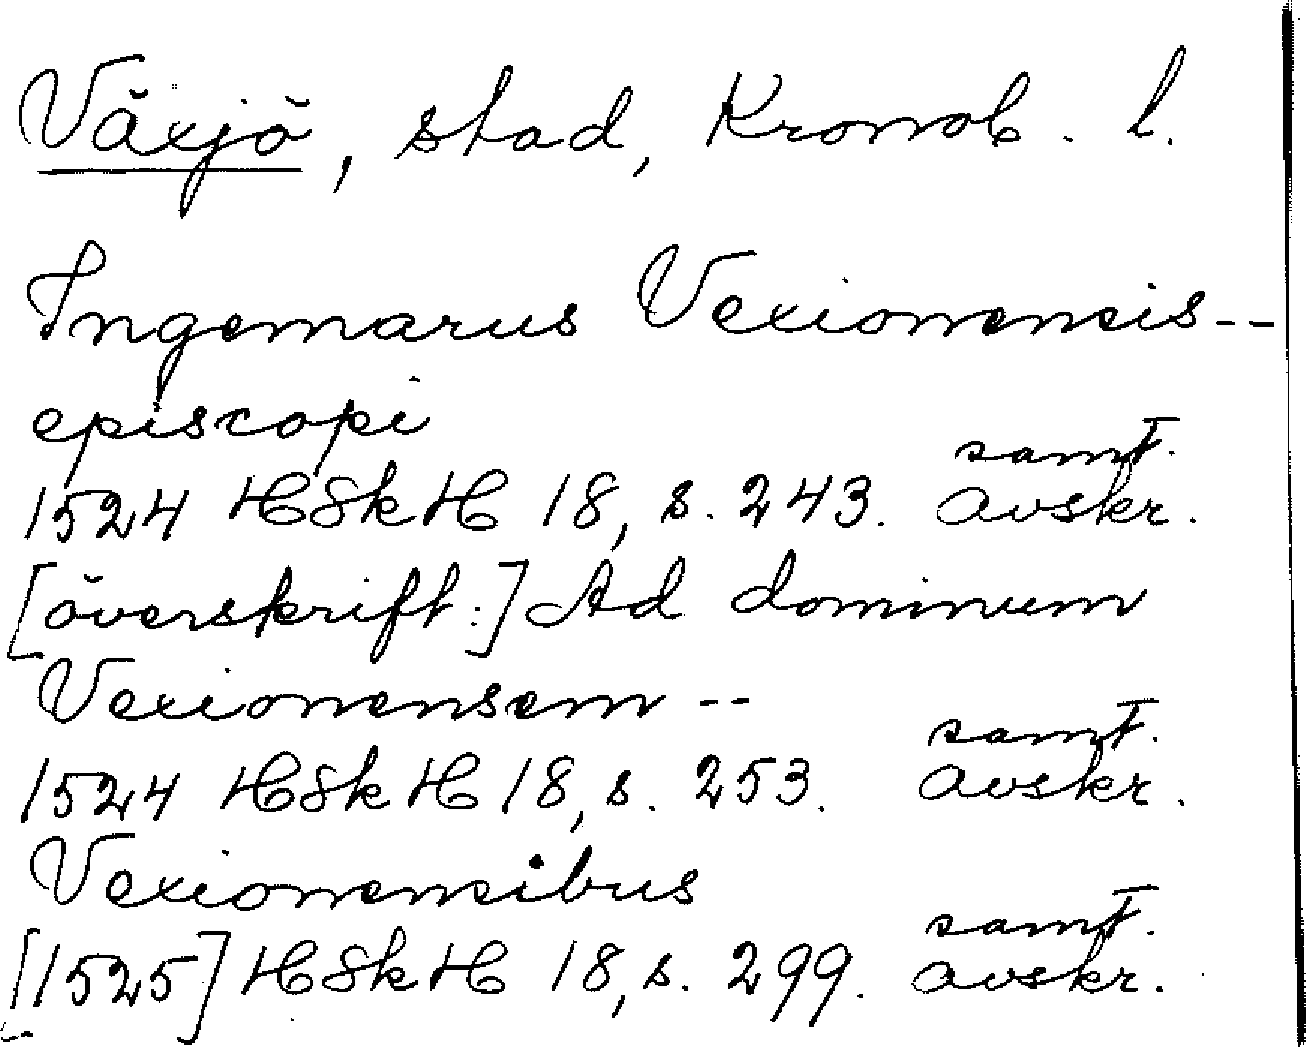 Växjö, stad, Kronob. l.
Ingemarus Vexionensis --
episcopi
1524 HSkH 18, s. 243. samt. avskr.
[överskrift:] Ad dominum
Vexionensem --
1524 HSkH 18, s. 253. samt. avskr.
Vexionensibus
[1525] HSkH 18, s. 299. samt. avskr.